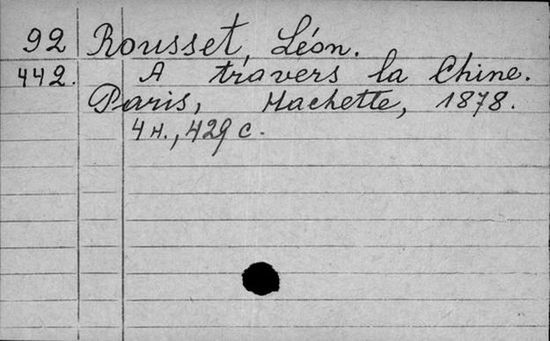 92 Rousset, Léon.
442. A travers la Chine.
Paris, Hachette, 1878.
4 н., 429 с.